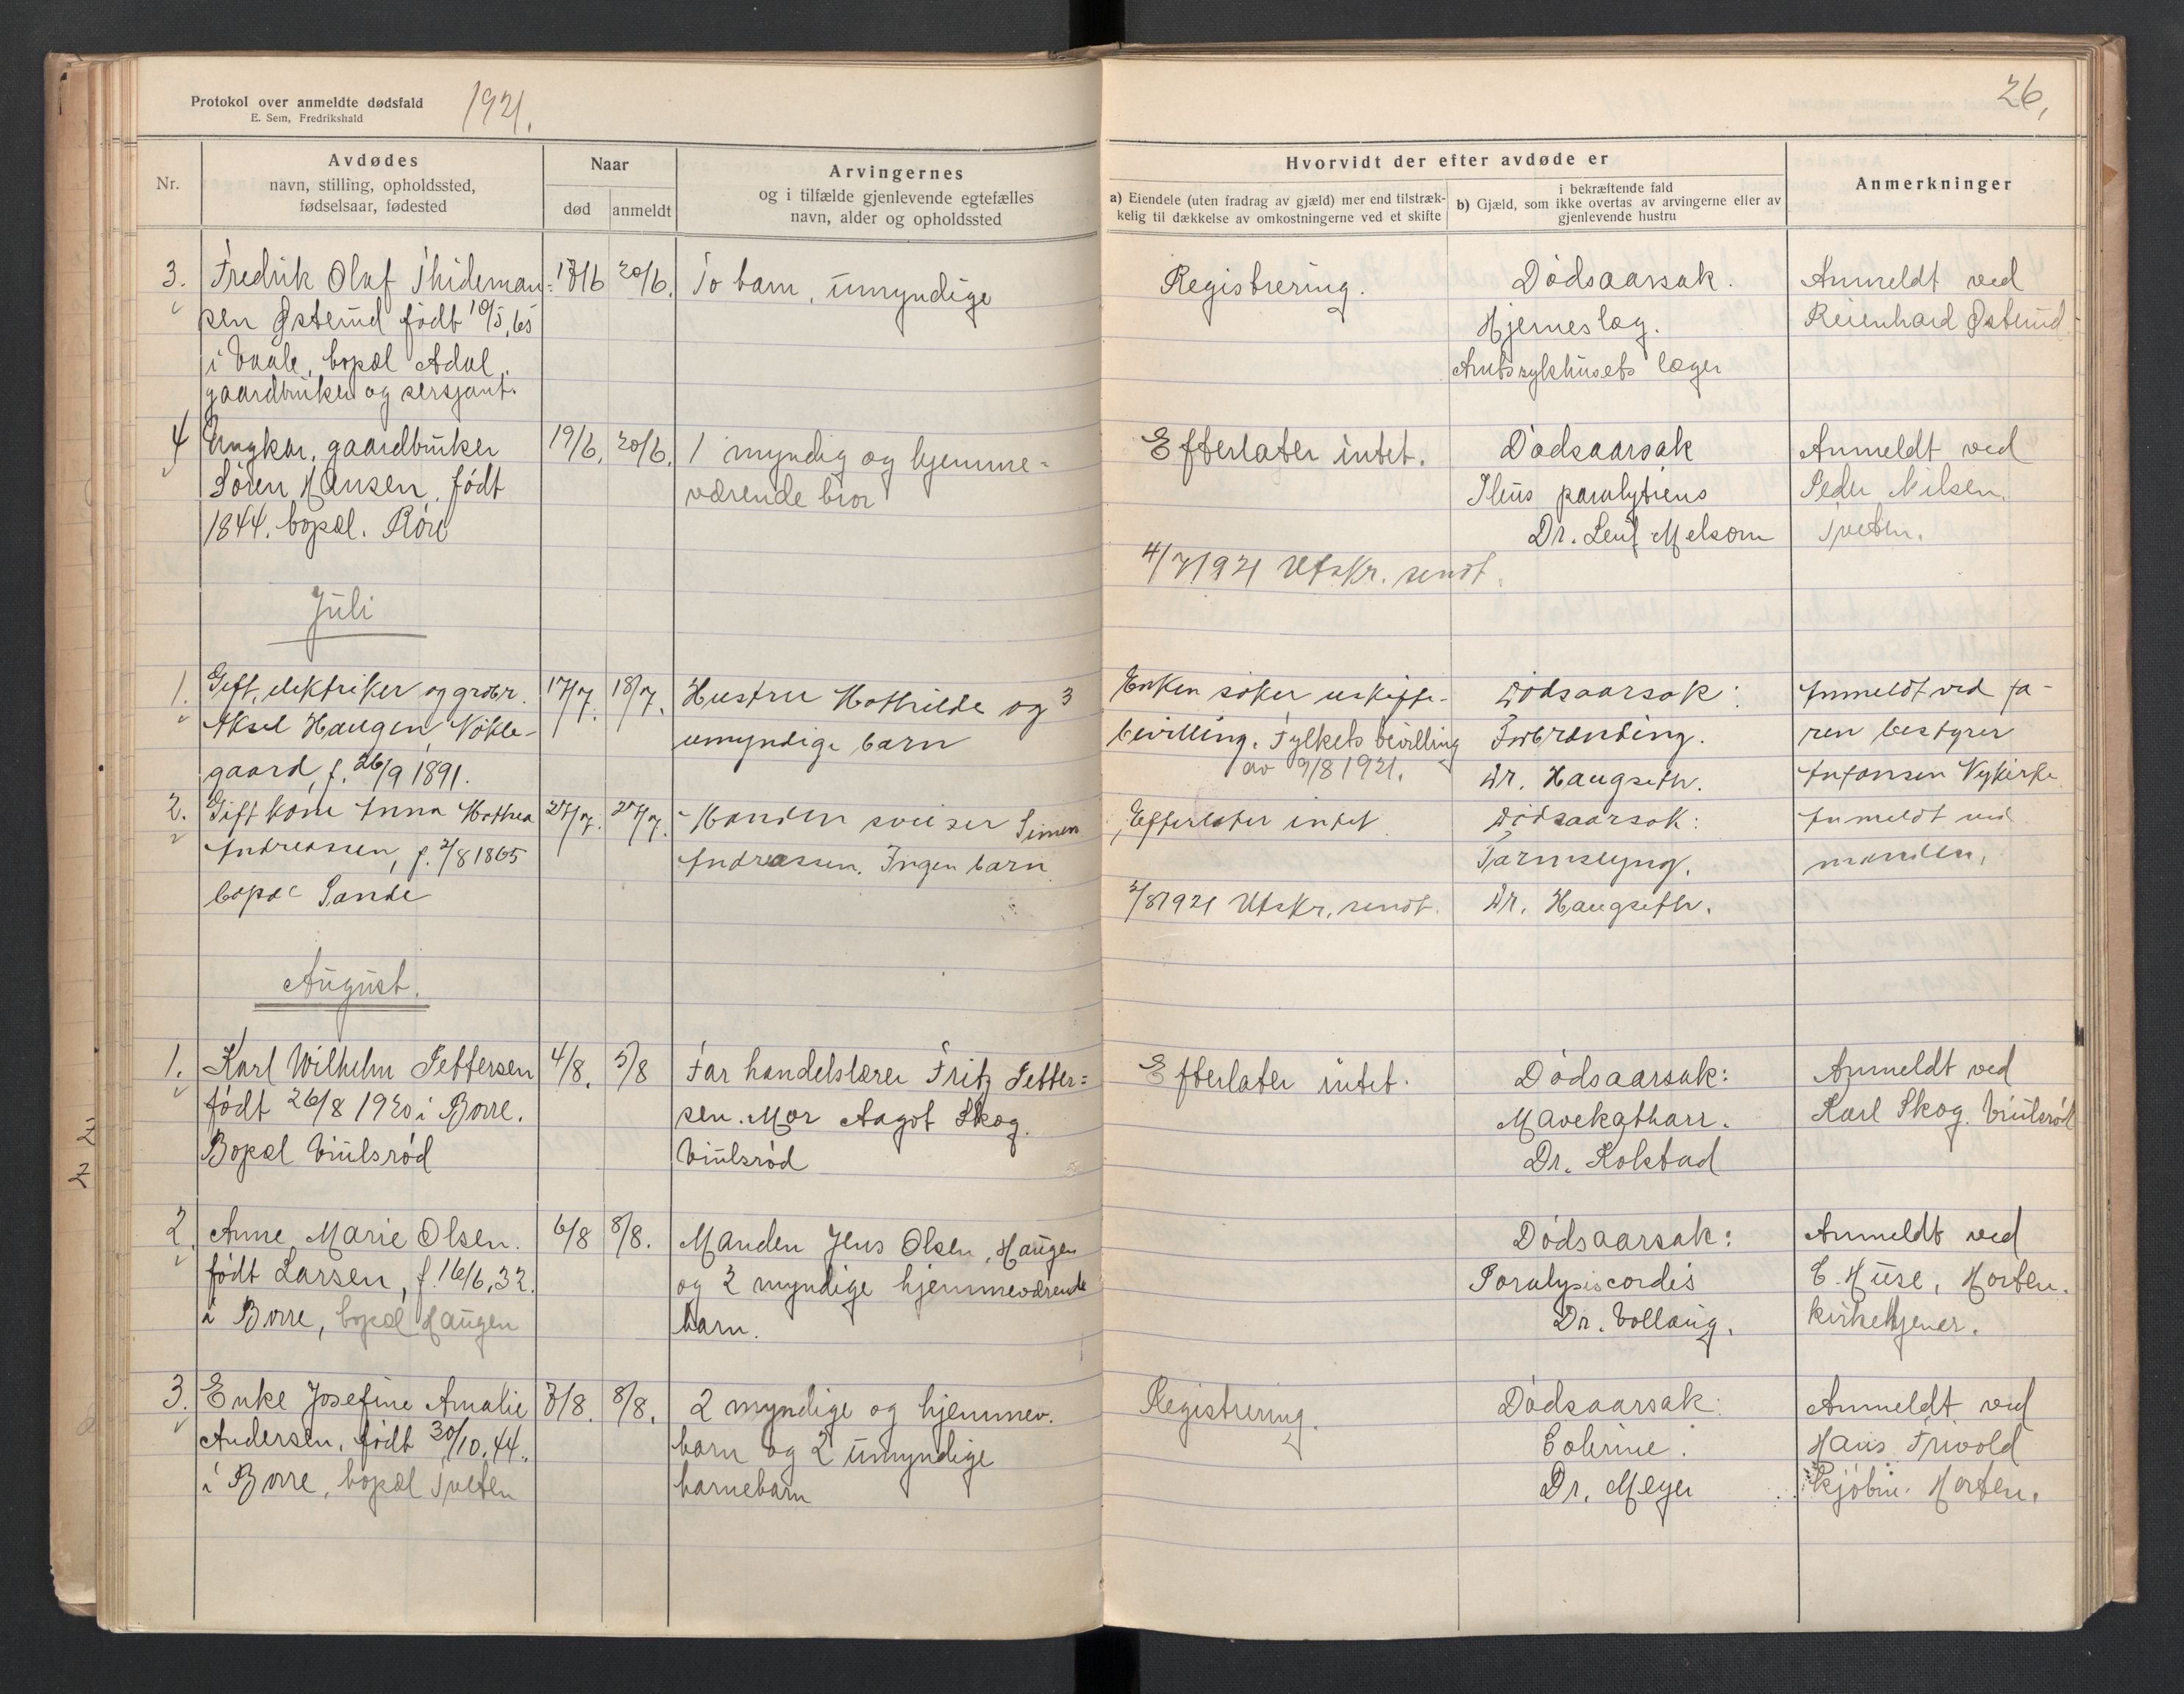 Protokol over anmeldte dødsfald
E. Sem, Fredrikshald
1921.
26,
Nr.
Avdødes
navn, stilling, opholdssted,
fødselsaar, fødested
Naar
død
anmeldt
Arvingernes
og i tilfælde gjenlevende egtefælles
navn, alder og opholdssted
Hvorvidt der efter avdøde er
a) Eiendele (uten fradrag av gjæld) mer end tilstræk-
kelig til dækkelse av omkostningerne ved et skifte
i bekræftende fald
b) Gjæld, som ikke overtas av arvingerne eller av
gjenlevende hustru
Anmerkninger
3. Fredrik Olaf Thideman= 17/6 20/6. To barn, umyndige Registrering. Dødsaarsak. Anmeldt ved
sen Østerud født 10/5, 65 Hjerneslag. Reienhard Østerud
i Vaale, bopæl Adal, Amtssykhusets læger
gaardbruker og sersjant.
4 Ungkar, gaardbruker 19/6, 20/6. 1 myndig og hjemme= Efterlater intet. Dødsaarsak Anmeldt ved
Søren Hansen, født værende bror Ileus paralyticus Peder Nilsen,
1844. bopæl. Røre Dr. Leif Melsom Tveten.
4/7 1921 Utskr. sendt.
Juli
1. Gift, elektriker og grdbr. 17/7. 18/7. Hustru Mathilde og 3 Enken søker uskifte- Dødsaarsak: Anmeldt ved fa-
Aksel Haugen, Nøkle- umyndige barn bevilling. Fylkets bevilling Forbrænding. ren bestyrer
gaard, f. 26/9 1891. av 9/8 1921. Dr. Haugseth. Antonsen Nykirke
2. Gift kone Anna Mathea 27/7. 27/7. Manden sveiser Simen Efterlater intet Dødsaarsak: Anmeldt ved
Andreassen, f. 2/8 1865 Andreassen. Ingen barn. Tarmslyng. manden,
bopæl Sande 2/8 1921 Utskr. sendt. Dr. Haugseth.
August.
1. Karl Wilhelm Pettersen 4/8. 5/8 Far handelslærer Fritz Petter= Efterlater intet. Dødsaarsak: Anmeldt ved
født 26/8 1920 i Borre. sen. Mor Aagot Skog. Mavekatharr. Karl Skog. Viulsrød
Bopæl Viulsrød Viulsrød Dr. Kolstad
2. Anne Marie Olsen. 6/8 8/8. Manden Jens Olsen, Haugen Dødsaarsak: Anmeldt ved
født Larsen, f. 16/6, 32. og 2 myndige hjemmeværende Paralysis cordis C. Huse, Horten.
i Borre, bopæl Haugen barn. Dr. Vollaug. kirketjener.
3. Enke Josefine Amalie 7/8. 8/8. 2 myndige og hjemmev. Registrering. Dødsaarsak: Anmeldt ved
Andersen, født 30/10, 44. barn og 2 umyndige Colerine. Hans Frivold
i Borre, bopæl Tveten barnebarn Dr. Meyer Skjøbru. Horten.
2
2